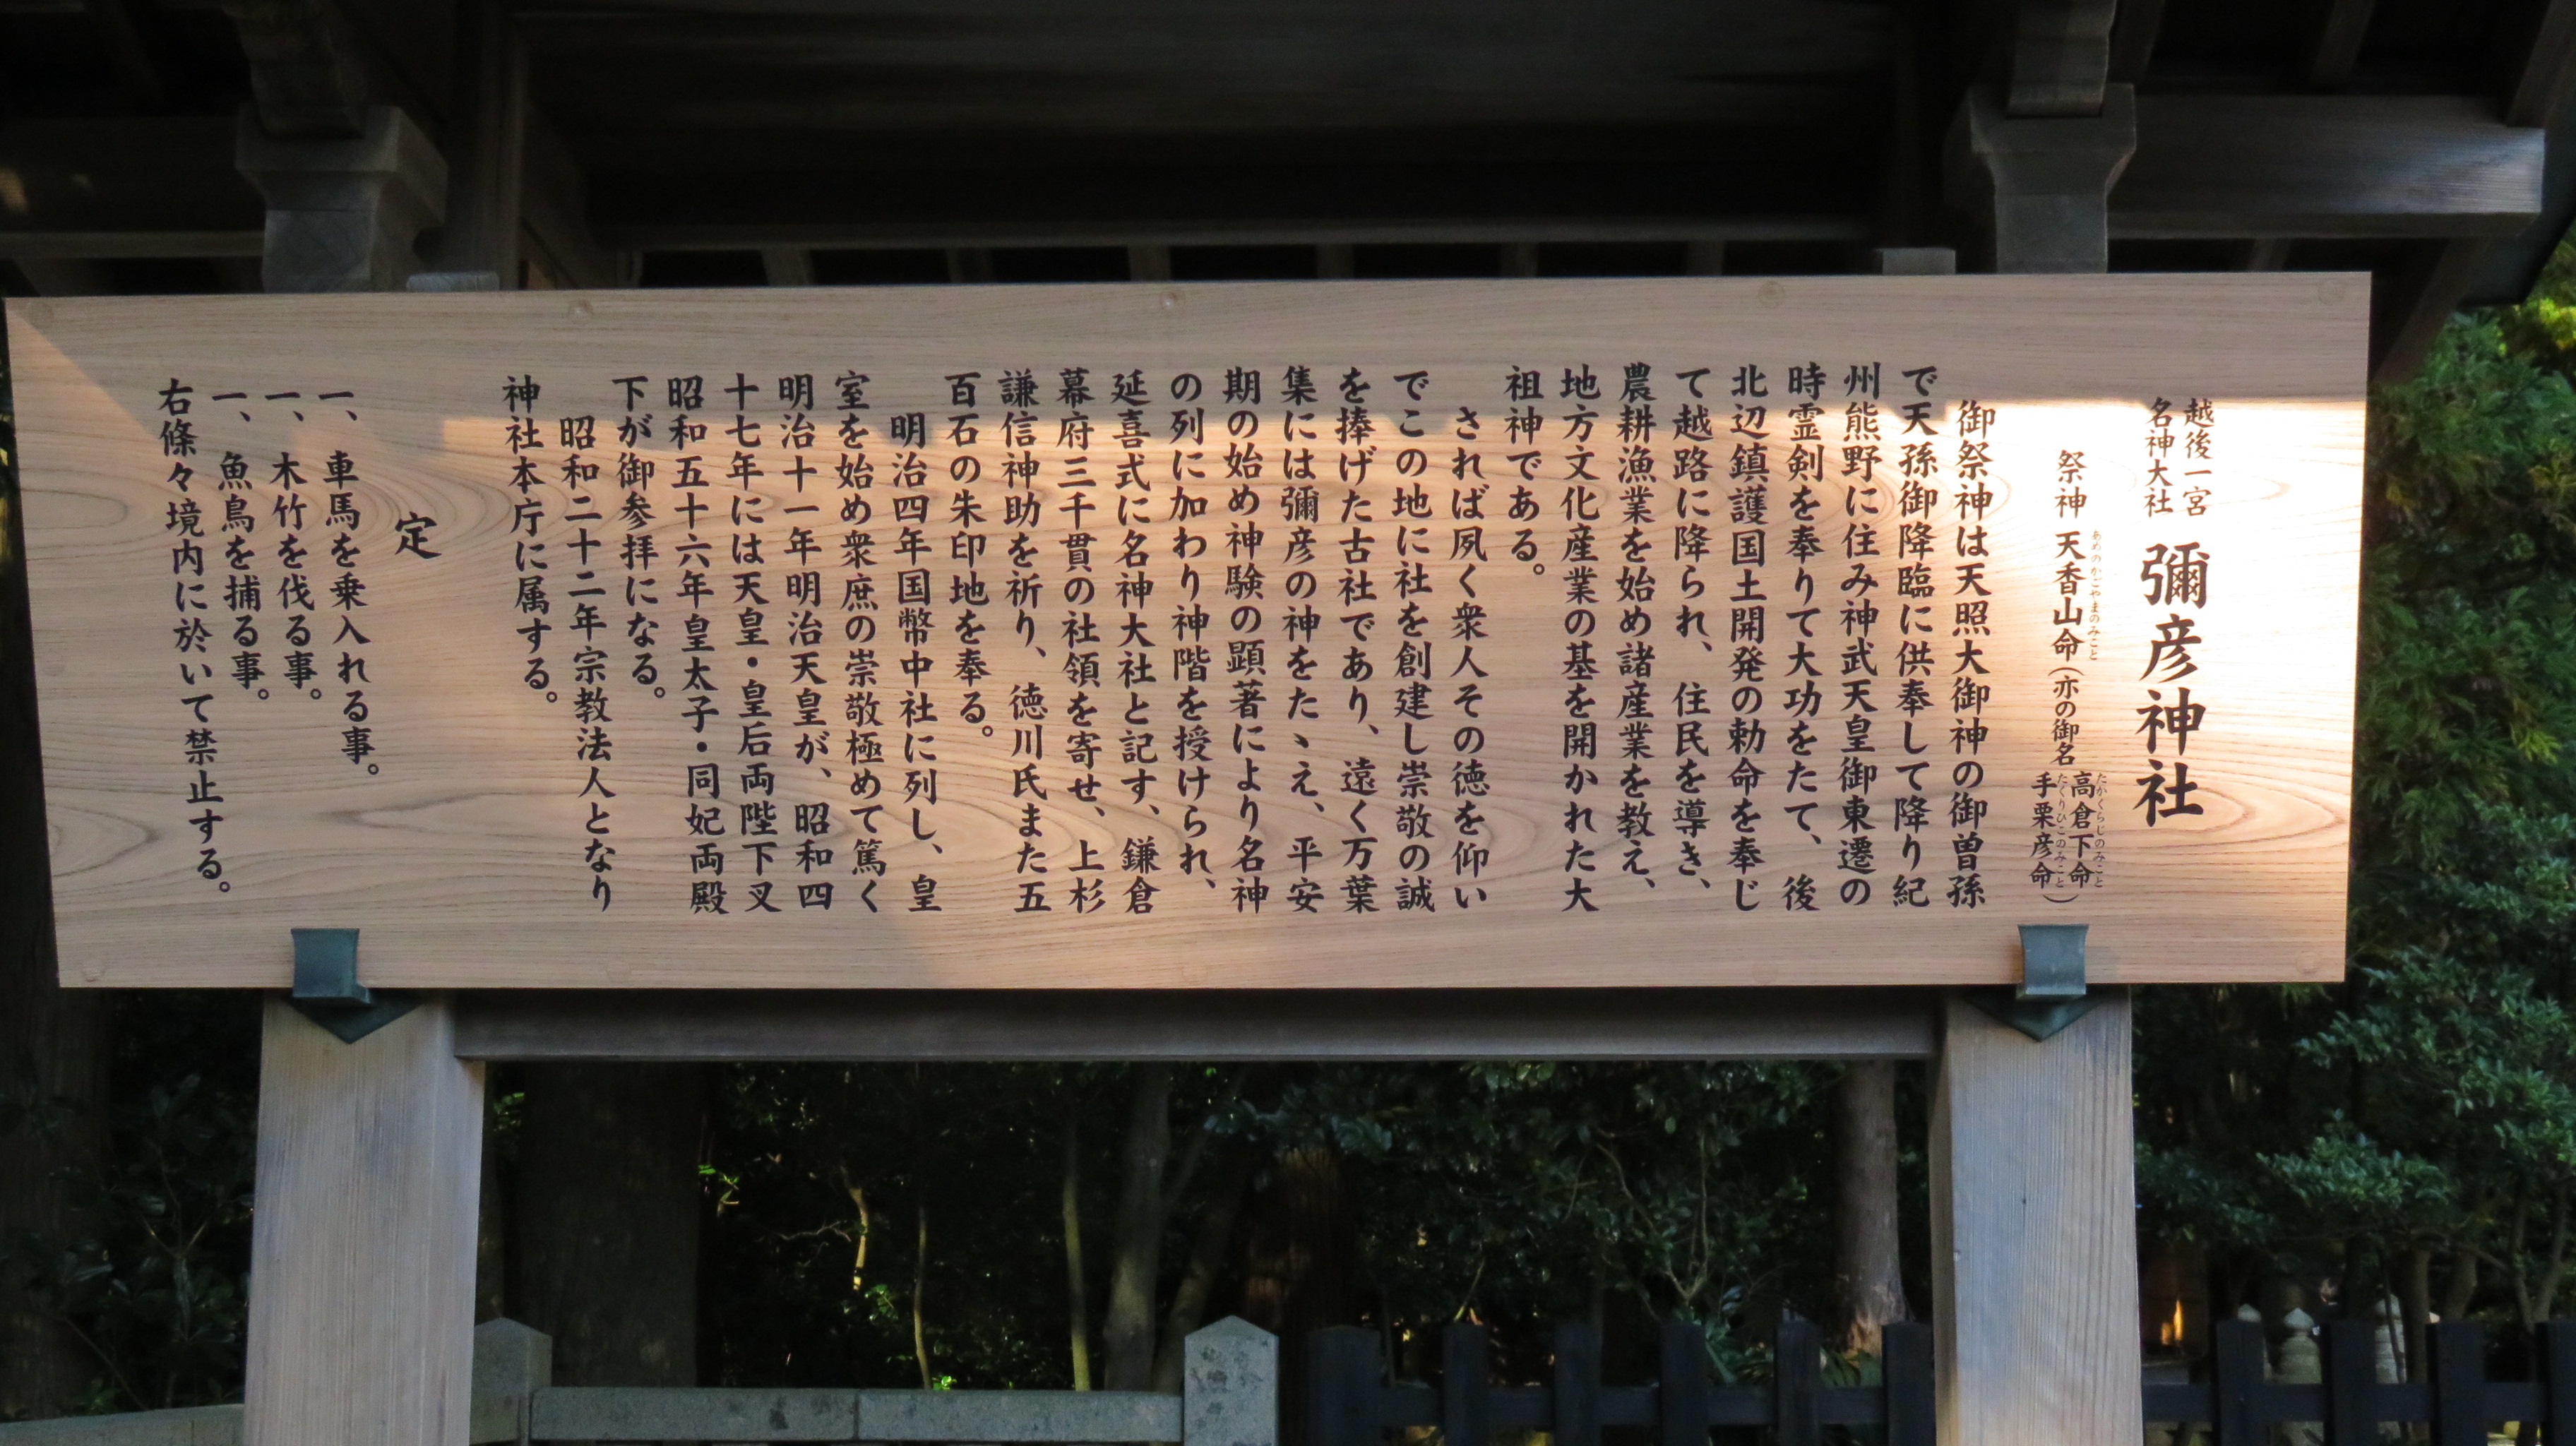 越後一宮
名神大社
彌彦神社
祭神 天香山命(亦の御名
あめのかごやまのみこと
高倉下命
たかくらじのみこと
手栗彦命)
たくりひこのみこと
御祭神は天照大御神の御曽孫
で天孫御降臨に供奉して降り紀
州熊野に住み神武天皇御東遷の
時霊剣を奉りて大功をたて、後
北辺鎮護国土開発の勅命を奉じ
て越路に降られ、住民を導き、
農耕漁業を始め諸産業を教え、
地方文化産業の基を開かれた大
祖神である。
されば夙く衆人その徳を仰い
でこの地に社を創建し崇敬の誠
を捧げた古社であり、遠く万葉
集には彌彦の神をたゝえ、平安
期の始め神験の顕著により名神
の列に加わり神階を授けられ、
延喜式に名神大社と記す、鎌倉
幕府三千貫の社領を寄せ、上杉
謙信神助を祈り、徳川氏また五
百石の朱印地を奉る。
明治四年国幣中社に列し、皇
室を始め衆庶の崇敬極めて篤く
明治十一年明治天皇が、昭和四
十七年には天皇・皇后両陛下叉
昭和五十六年皇太子・同妃両殿
下が御参拝になる。
昭和二十二年宗教法人となり
神社本庁に属する。
定
一、車馬を乗入れる事。
一、木竹を伐る事。
一、魚鳥を捕る事。
右條々境内に於いて禁止する。